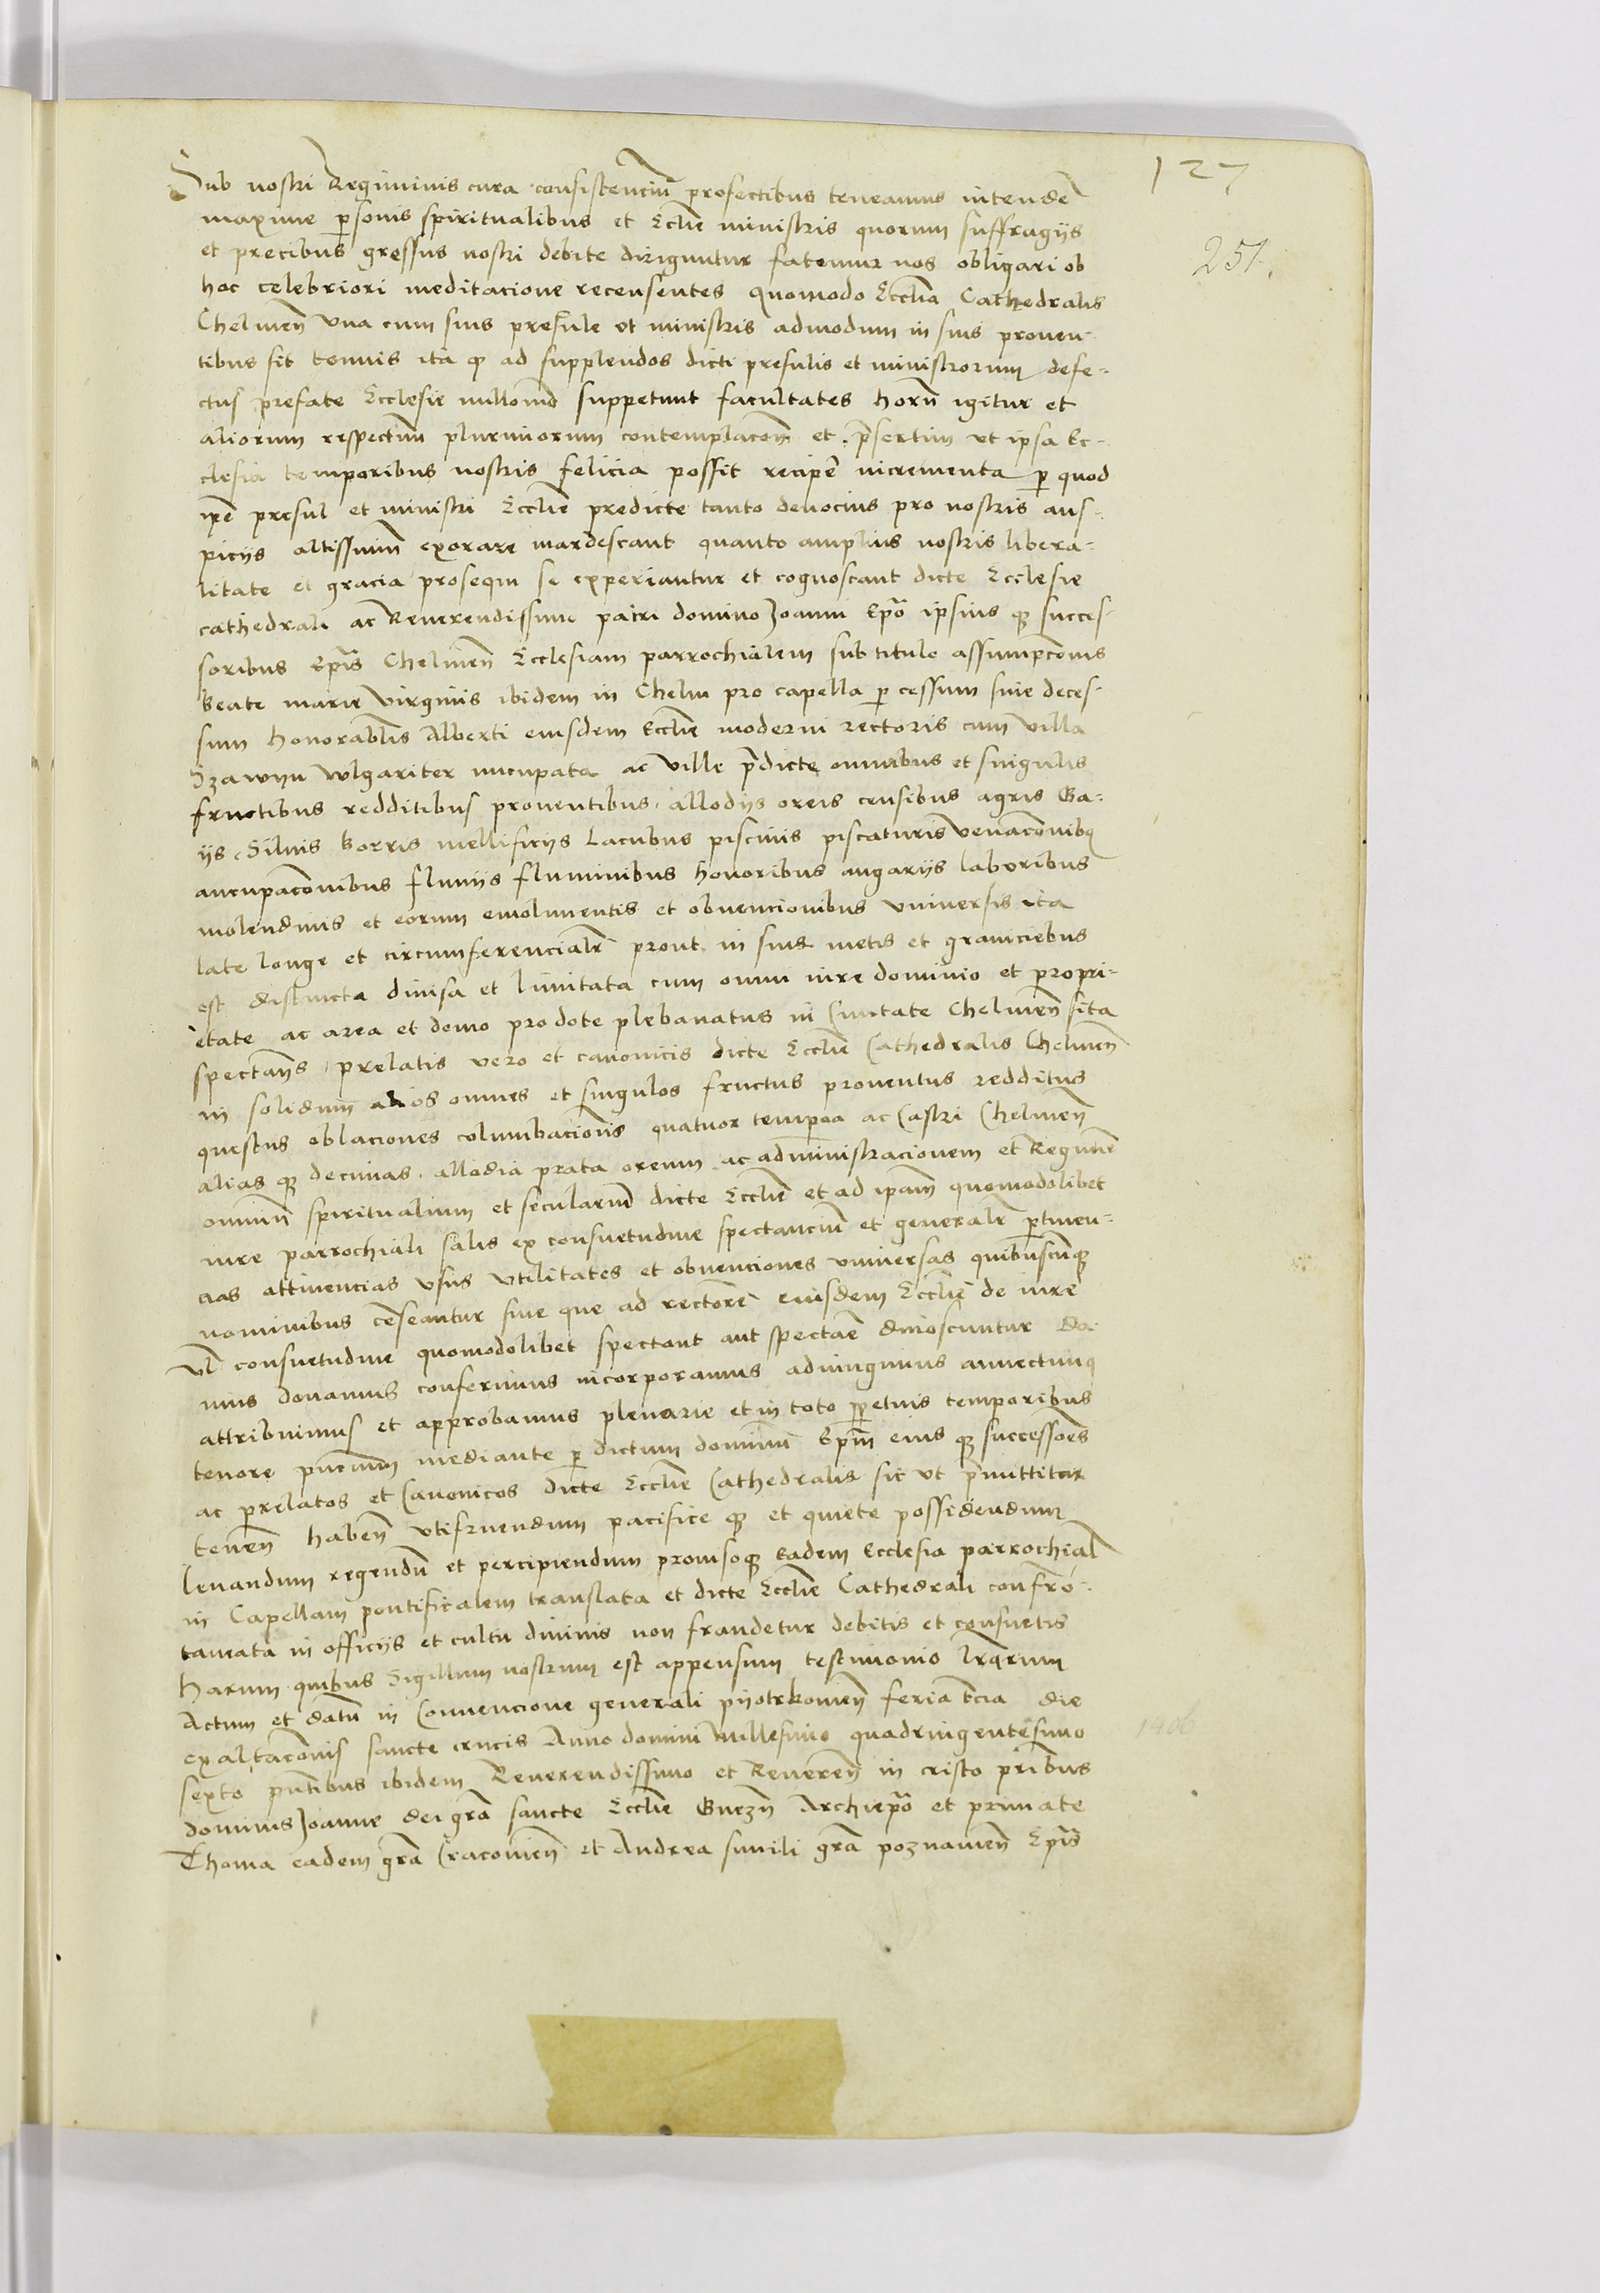 127
251.
Sub nostri Regiminis cura consistenciũ profectibus teneamus intendẽ
maxime p̱sonis spiritualibus et Ecclie ministris quorum suffragijs
et precibus gressus nostri debite diriguntur fatemur nos obligari ob
hoc celebriori meditacione recensentes quomodo Ecclia Cathedralis
Chelmeñ vna cum suis presule et ministris admodum in suis proven-
tibus sit tenuis ita ꝙ ad supplendos dicti presulis et ministrorum defe-
ctus prefate Ecclesie nullomõ suppetunt facultates horũ igitur et
aliorum respectuũ plurimorum contemplacoñ et p̃sertim vt ipsa Ec-
clesia temporibus nostris felicia possit recipẽ incrementa p̱ quod
ip̃e presul et ministri Ecclie predicte tanto devocius pro nostris aus-
picijs altissimũ exorare inardescant quanto amplius nostris libera-
litate et gracia prosequi se experiantur et cognoscant dicte Ecclesie
cathedrali ac Reverendissimo patri domino Joanni Ep̃o ipsius qȝ succes-
soribus Ep̃is Chelmeñ Ecclesiam parrochialem sub titulo assumpc̃onis
beate marie virginis ibidem in Chelm pro capella p̱ cessum siue deces-
sum honorablis Alberti eiusdem Ecclie moderni rectoris cum villa
Szawyn wlgariter nucupata ac ville p̃dicte omnibus et singulis
fructibus redditibus proventibus allodijs oreis censibus agris Ga-
ijs Siluis borris mellificijs Lacubus piscinis piscaturis venac̃onibꝯ
aucupac̃onibus fluuijs fluminibus honoribus angarijs laboribus
molendinis et eorum emolumentis et obvencionibus vniversis ita
late longe et circumferencialr̃ prout in suis metis et graniciebus
est distincta divisa et limitata cum omni iure dominio et propri-
etate ac area et domo pro dote plebanatus in Civitate Chelmeñ sita
spectañs prelatis vero et canonicis dicte Ecclie Cathedralis Chelmeñ
in solidum alios omnes et singulos fructus proventus redditus
questus oblaciones columbacionis quatuor tempora ac Castri Chelmeñ
alias qȝ decimas allodia prata oreum ac administracionem et Regimẽ
omniũ spiritualium et seculariũ dicte Ecclie et ad ip̃am quomodolibet
iure parrochiali salis ex consuetudine spectanciũ et generalr̃ p̱tinen-
cias attinencias vsus vtilitates et obvenciones vniversas quibuscũqȝ
nominibus cẽseantur siue que ad rectorẽ eiusdem Ecclie de iure
vl̃ consuetudine quomodolibet spectant aut spectaẽ dinoscuntur da-
mus donamus conferimus incorporamus adiungimus annectimꝯ
attribuimus et approbamus plenarie et in toto p̱petuis temporibus
tenore pñcium mediante p̱ dictum dominũ Ep̃m eius qȝ successoẽs
ac prelatos et Canonicos dicte Ecclie Cathedralis sic vt p̃mittitur
teneñ habeñ vtifruendum pacifice qȝ et quiete possidendum
levandum regendũ et percipiendum provisoqȝ Eadem Ecclesia parrochial̃
in Capellam pontificalem translata et dicte Ecclie Cathedrali confro-
tamata in officijs et cultu divinis non fraudetur debitis et consuetis
harum quibus Sigillum nostrum est appensum testimonio lr̃arum
Actum et datũ in Convencione generali pijotrkovieñ feria t̃cia die
exaltac̃onis sancte crucis Anno domini Millesimo quadringentesimo
1406
sexto pñtibus ibidem Reverendissimo et Revereñ in cristo p̃ribus
dominis Joanne dei gr̃a sancte Ecclie Gnezñ Archiep̃o et primate
Thoma eadem gr̃a Cracovieñ et Andrea simili gr̃a poznanieñ Ep̃is